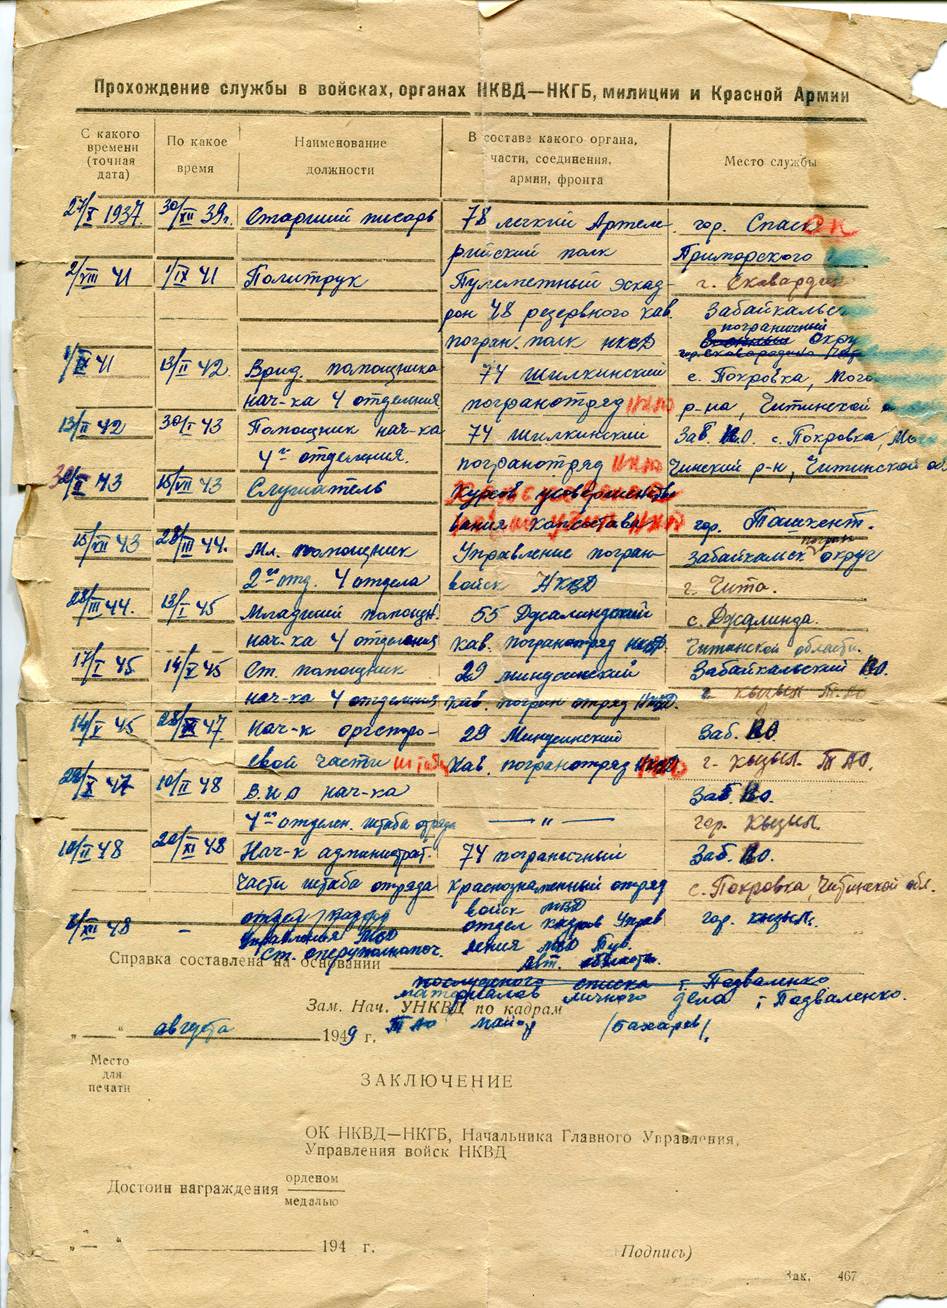 Прохождение службы в войсках, органах НКВД—НКГБ, милиции и Красной Армии
С какого времени (точная дата) По какое время Наименование должности В составе какого органа, части, соединения, армии, фронта Место службы
27/X 1937 30/XII 39г. Старший писарь 78 легкий Артиле гор. Спасск ОК
рийский полк Приморского
2/VIII 41 1/IX 41 Политрук Пулеметный эскад- г. Сковардин
рон 48 резервного кав. Забайкальс
погран. полк НКВД пограничный окру
1/IX 41 13/II 42 Врид. помощника 74 Шилкинский с. Покровка, Мого
нач-ка 4 отделения погранотряд р-на, Читинской
13/II 42 30/I 43 Помощник нач-ка 74 Шилкинский Заб. В.О. с. Покровка, Мо
4го отделения. погранотряд чинский р-н, Читинской об
43 15/VII 43 Слушатель Курсов усовершенство
вания гор. Ташкент.
15/VII 43 28/III 44. Мл. помощник Управление погран- Забайкальск погран округ
2го отд. 4 отдела войск НКВД г. Чита.
28/III 44. 13/I 45 Младший помощн. 55 кав. погранотряд с.
нач-ка 4 отделения Читинской области.
17/I 45 14/V 45 Ст. помощник 29 минусинский Забайкальский В.О.
нач-ка 4 отделения Кав. погран отряд г. Кызыл Т.АО
14/V 45 47 Нач-к оргстро- 29 Минусинский Заб. ВО
евой части штаба Кав. погранотряд г. Кызыл. ТАО.
28/X 47 10/II 48 В.И.О нач-ка Заб. В.О.
4го отделен. штаба отряда — " — гор. Кызыл.
10/II 48 20/XI 48 Нач-к администрат. 74 пограничный Заб. В.О.
части штаба отряда Краснознаменный отряд с. Покровка, Читинской обл.
войск МВД
XII 48 – отдел кадров Управ гор. Кызыл.
управления ления МВД Тув.
Ст. оперуполномоч. авт. области.
Справка составлена на основании
послужного списка т. Подваленко
материалов личного дела т Подваленко.
Зам. Нач. УНКВД по кадрам
„ — “ августа 1949 г. ТАО майор /Бахарев/.
Место
для
печати
ЗАКЛЮЧЕНИЕ
ОК НКВД—НКГБ, Начальника Главного Управления,
Управления войск НКВД
Достоин награждения орденом
медалью
„ — “ 194 г.
(Подпись)
Зак. 467